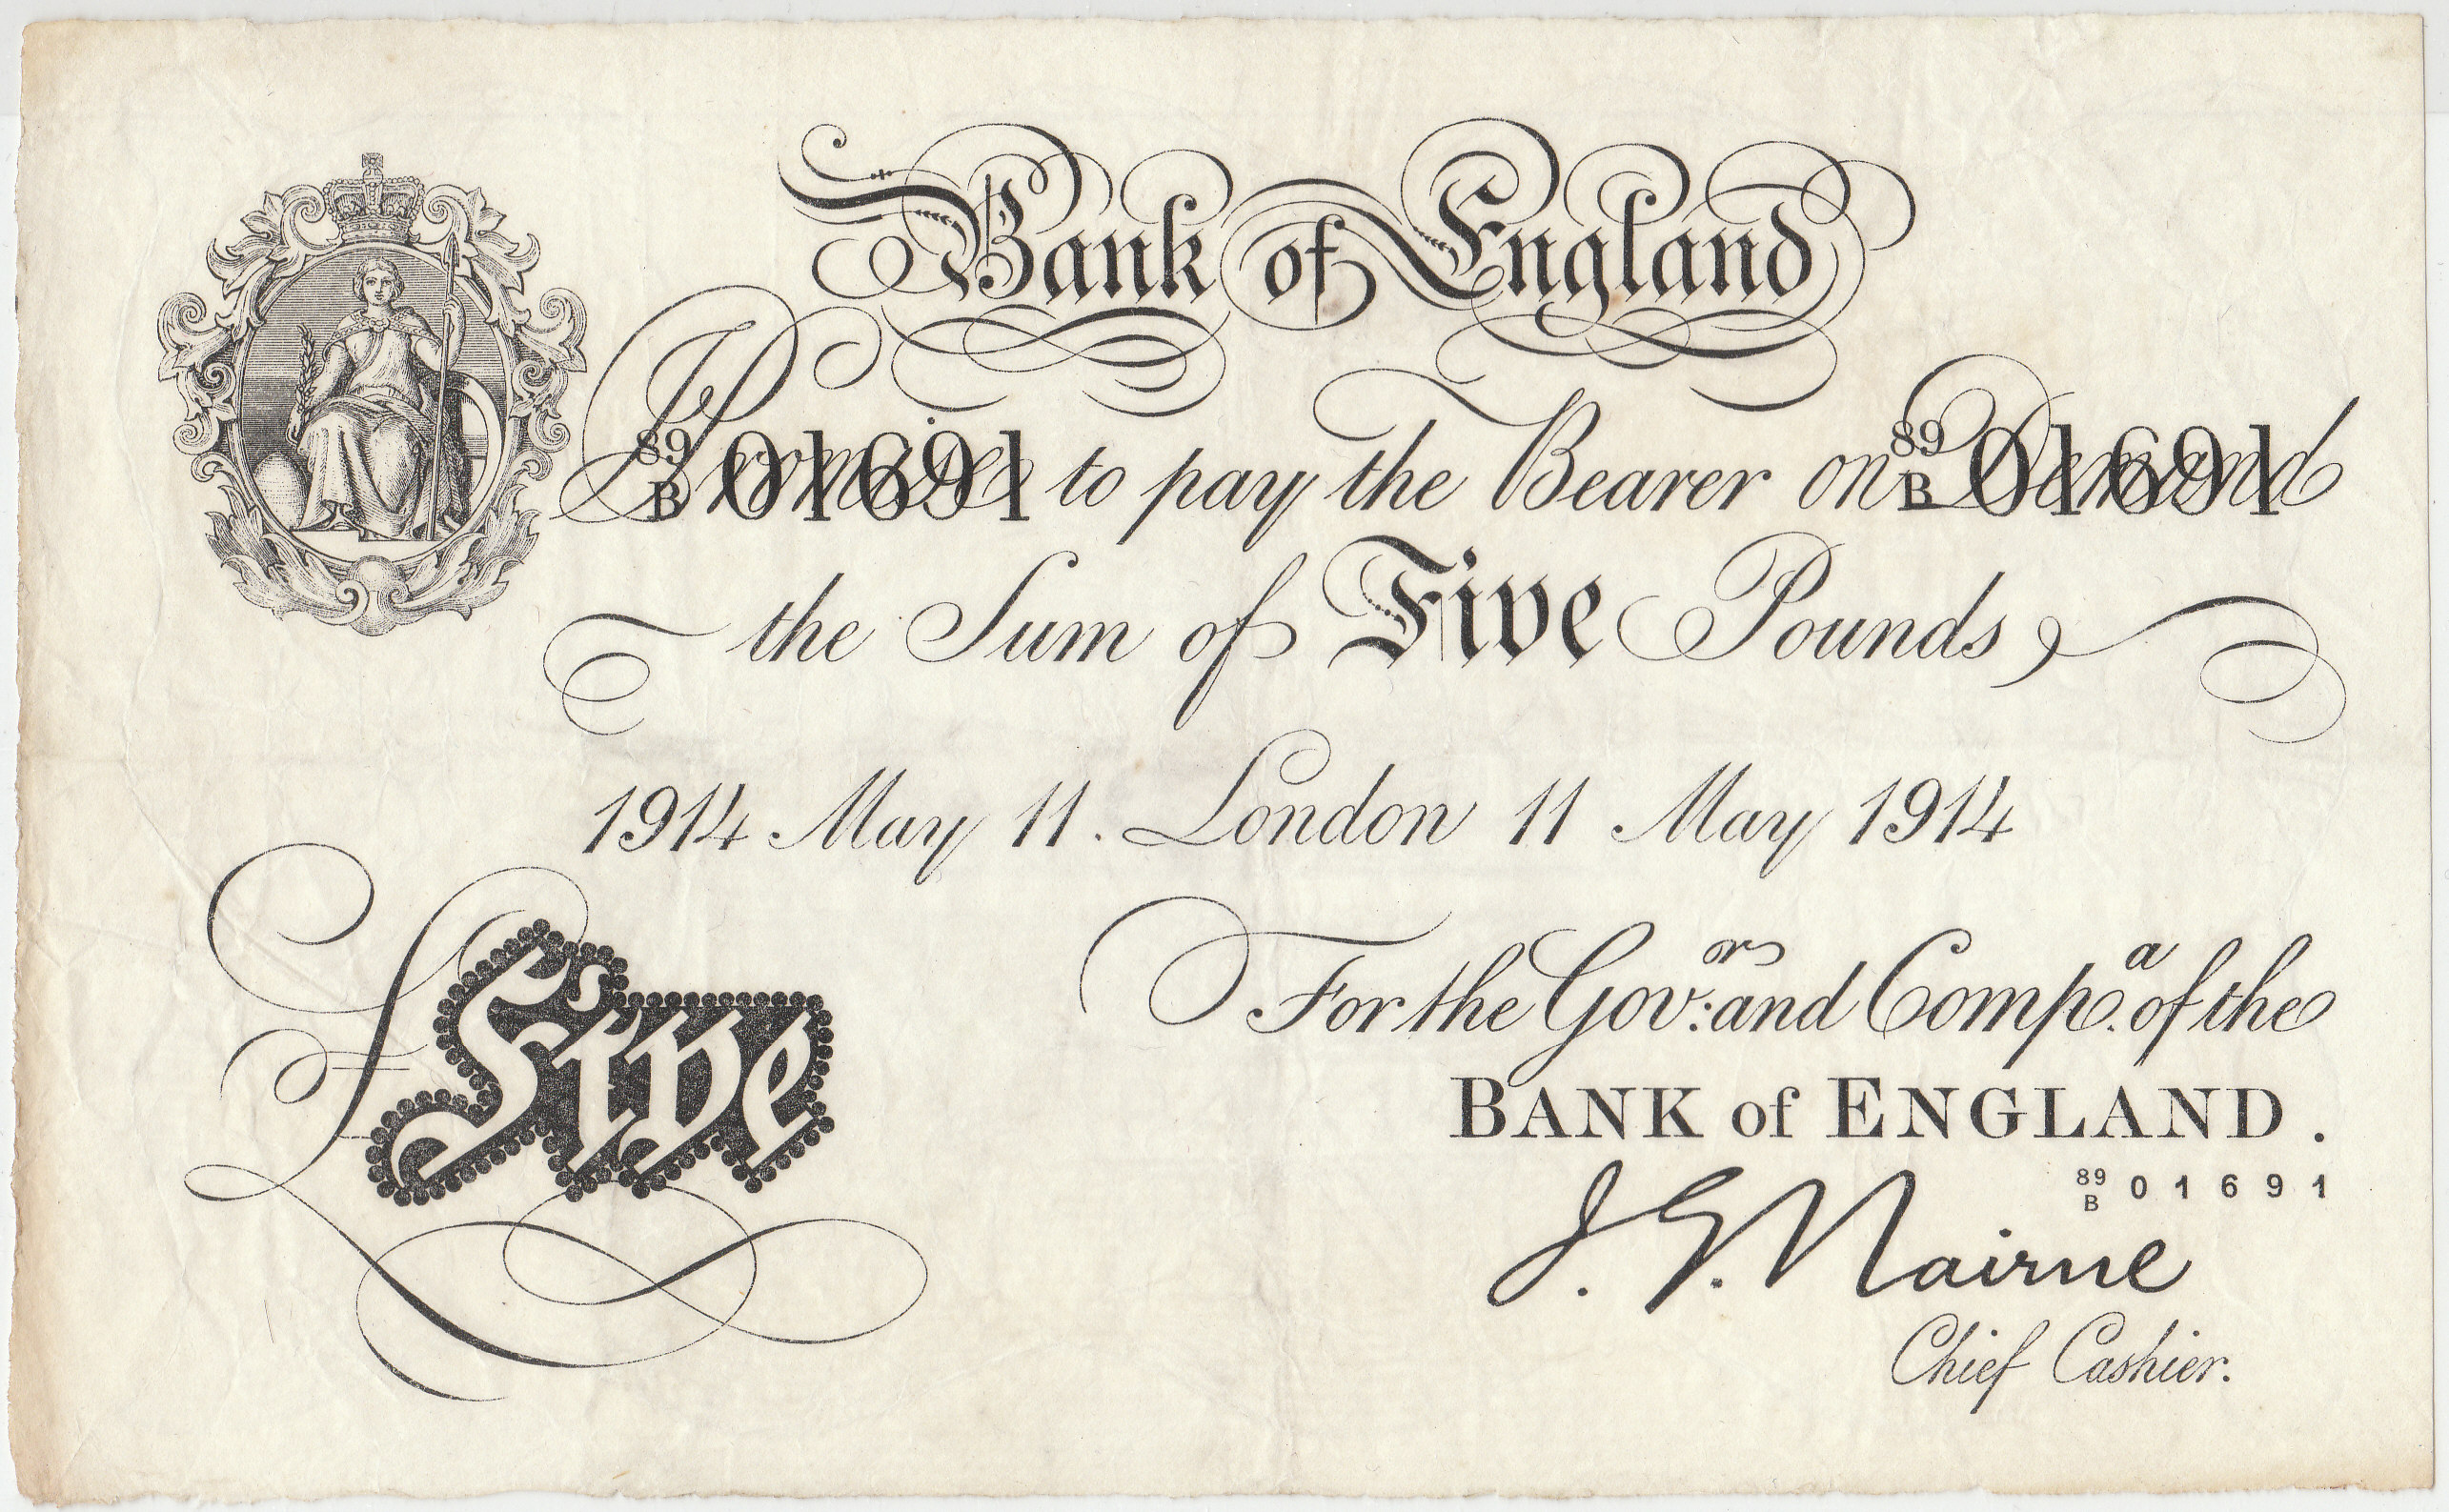 Bank of England
89
B 01691 89
B 01691
Promise to pay the Bearer on Demand
the Sum of Five Pounds
1914 May 11. London 11 May 1914
For the Gov:ors and Comp.a of the
BANK of ENGLAND.
89
B 01691
£Five
J. G. Nairne
Chief Cashier.